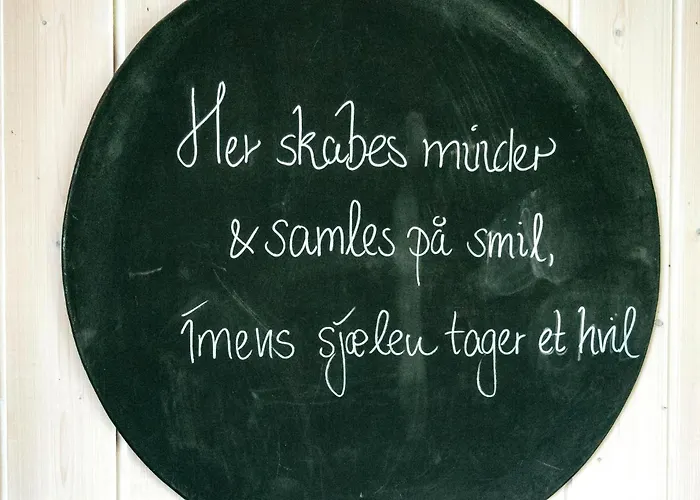 Her skabes minder
& samles på smil,
imens sjælen tager et hvil